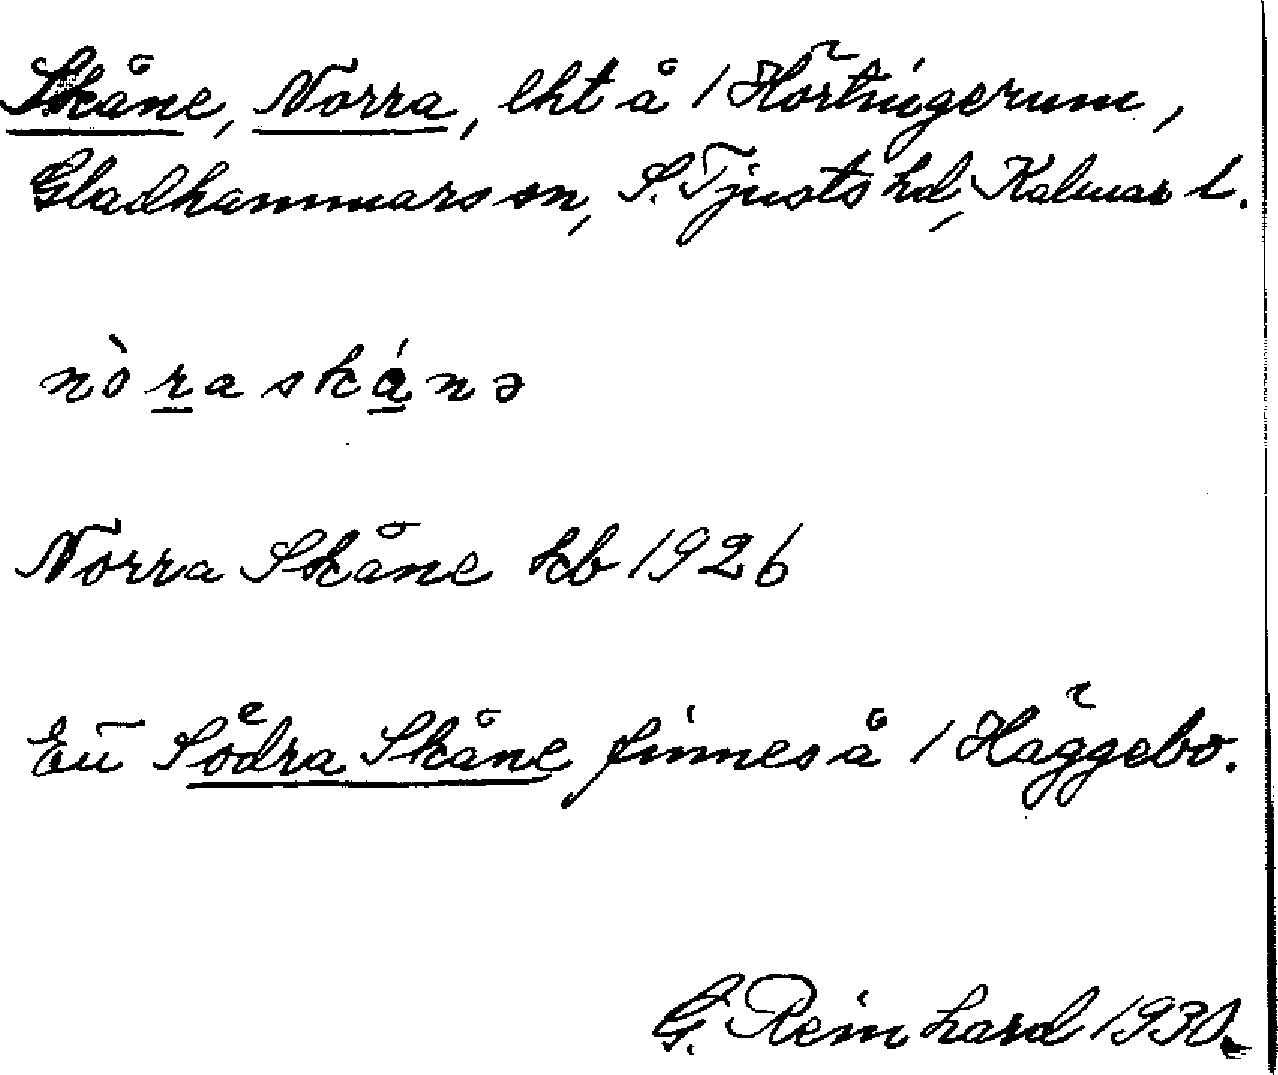 Skåne, Norra, lht å 1 Hörtingerum,
Gladhammars sn, S. Tjusts hd, Kalmar l.
nòraskánə
Norra Skåne kb 1926
Ett Södra Skåne finnes å 1 Häggebo.
G. Reinhard 1930.